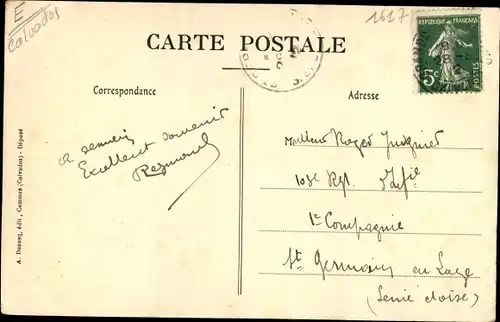 E
Calvados
1617
CARTE POSTALE
REPUBLIQUE FRANÇAISE
5c
POSTES
Correspondance
Adresse
Excellent souvenir
Raymond
Monsieur Roger
103e Rgt
1re Compagnie
St Germain en Laye
(Seine &oise)
A. Dubosq, édit., Commes (Calvados) - Déposé